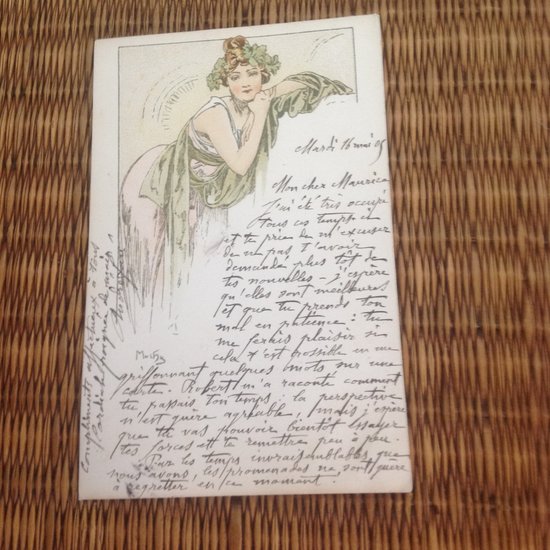 Mardi 16 mai 05
Mon cher Maurice
J'ai été très occupé
tous ces temps ci
et te prie de m'excuser
de ne pas t'avoir
demandé plus tôt de
tes nouvelles - j'espère
qu'elles sont meilleures
et que tu prends ton
mal en patience : tu
me ferais plaisir si
cela t'est possible en me
griffonnant quelques mots sur une
carte. Robert m'a raconté comment
tu passais ton temps : la perspective
n'est guère agréable, mais j'espère
que tu vas pouvoir bientôt essayer
tes forces et te remettre peu à peu.
Par les temps invraisemblables que
nous avons, les promenades ne sont guère
à regretter en ce moment.
Compliments affectueux à tous
Cordiale poignée de mains
Mucha